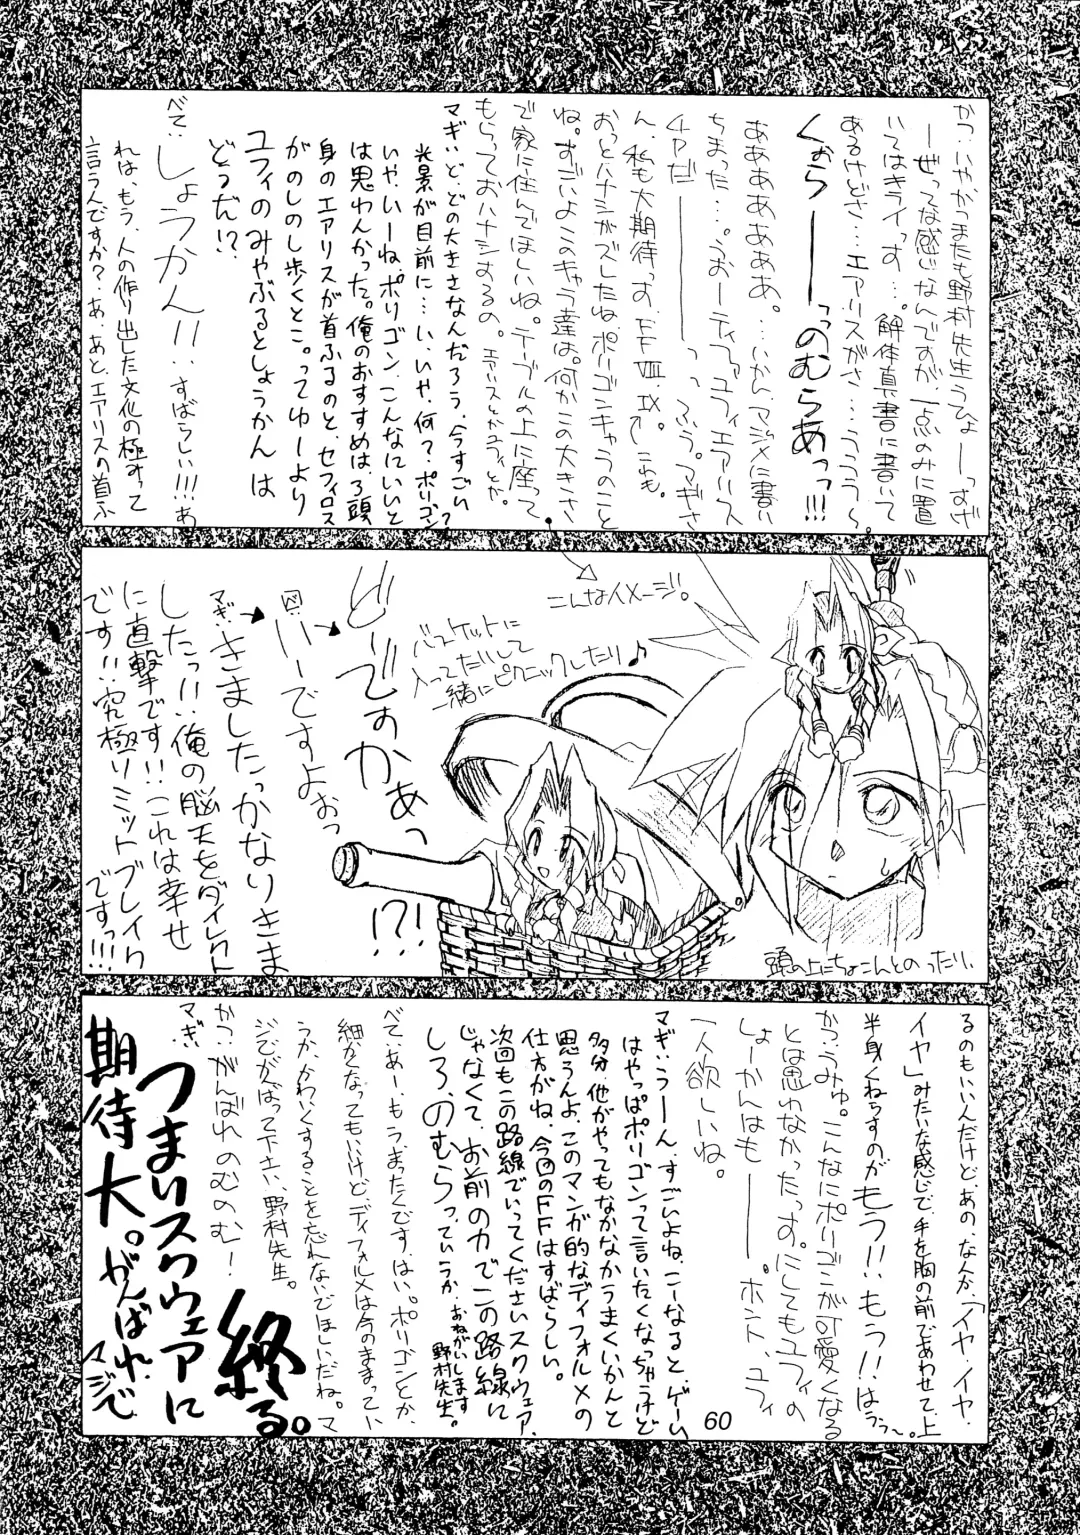 かつ：いやかつまたも野村先生うひょーっすげ
ーぜってな感じなんですが一点のみに置
いてはキライっす…。解体真書に書いて
あるけどさ…エアリスがさ…うううう〜。
くぉらーーっっのむらあっ!!!
あああああああ。…いかん、マジメに書い
ちまった…。うおーティファユフィエアリス
4ヤだーーーっっ ふう。マギさ
ん、私も大期待っす。FFⅧ、Ⅸ。これも。
おっとハナシがズレたね。ポリゴンキャラのこと
ね。すごいよこのキャラ達は。何かこの大きさ
で家に住んでほしいね。テーブルの上に座って
もらっておハナシするの。エアリスとかユフィとか。
マギ：ど、どの大きさなんだろう、今すごい
光景が目前に…い、いや、何？ポリゴン？
いや、いーね、ポリゴン、こんなにいいと
は思わんかった。俺のおすすめは、3頭
身のエアリスが首ふるのと、セフィロス
がのしのし歩くとこ。ってゆーより
ユフィのみやぶるとしょうかんは
どうだ!?
べて：しょうかん!!…すばらしい!!!あ
れは、もう、人の作り出した文化の極みって
言うんですか？あ、あと、エアリスの首ふ
こんなイメージ。
バスケットに
入ってだして
一緒にピクニックしたり♪
頭の上にちょこんとのったり、
どーですかあっ!?!
図：いーですよぉっ
マギ：きましたっかなりきま
したっ!!俺の脳天をダイレクト
に直撃です!!これは幸せ
です!!究極リミットブレイク
ですっ!!!
るのもいいんだけど、あの、なんか、「イヤ・イヤ・
イヤ」みたいな感じで、手を胸の前であわせて上
半身くねらすのがもう!!もう!!はぅぅ〜。
かつ：うみゅ。こんなにポリゴンが可愛くなる
とは思わなかったっす。にしてもユフィの
しょーかんはもーーー。ホント、ユフィ
一人欲しいね。
マギ：うーん、すごいよね、こーなると、ゲーム
はやっぱポリゴンって言いたくなっちゃうけど
多分、他がやってもなかなかうまくいかんと
思うんよ、このマンガ的なディフォルメの
仕方がね、今回のFFはすばらしい。
次回もこの路線でいってくださいスクウェア、
じゃなくて、お前の力でこの路線に
しろ、のむらっていうか、おねがいします
野村先生。
べて：あー、もうまったくです、はい。ポリゴンとか、
細かくなってもいいけど、ディフォルメは今のままってい
うか、かわいくすることを忘れないでほしいだね。マ
ジでがんばって下さい、野村先生。
かつ：がんばれのむのむ！
マギ：
つまりスクウェアに
期待大。がんばれ、
マジで
終る。
60